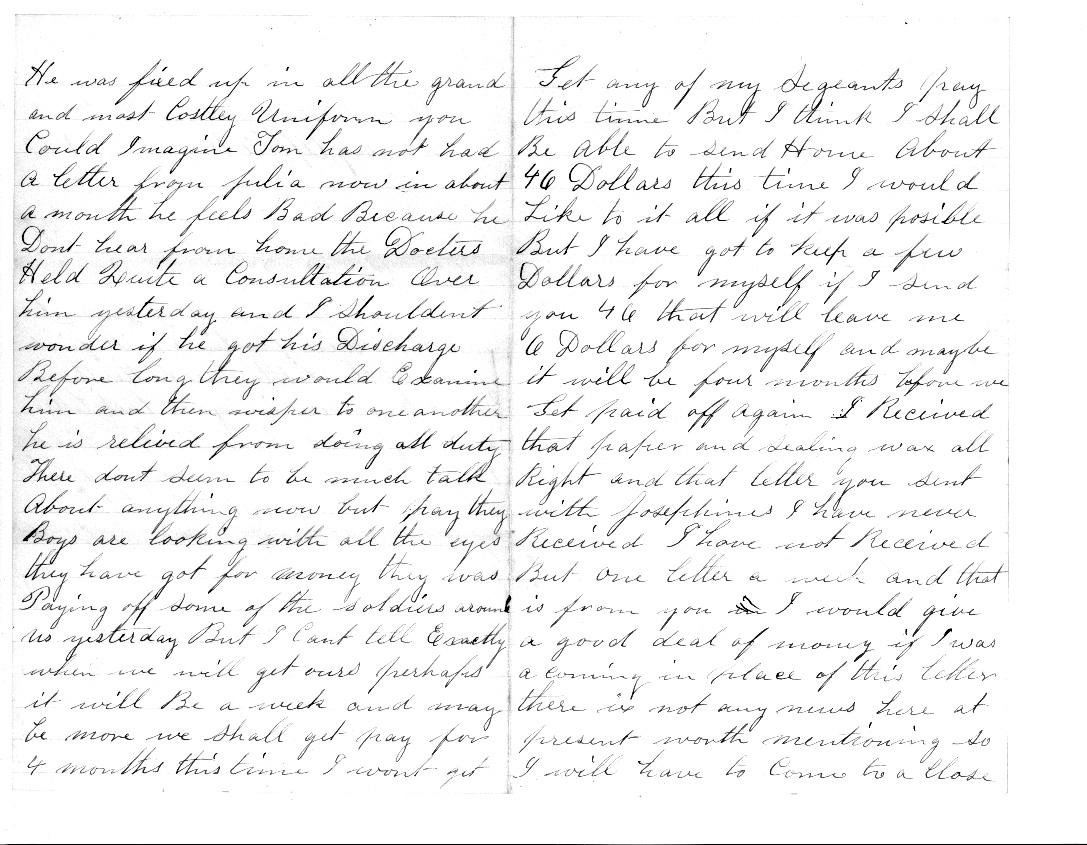 He was fixed up in all the grand
and most Costley Uniform you
Could Imagine Tom has not had
a letter from Julia now in about
a month he feels Bad Because he
Dont hear from home the Docters
Held Quite a Consultation Over
him yesterday and I shouldent
wonder if he got his Discharge
Before long they would Examine
him and then wisper to one another
he is relived from doing all duty
There dont seem to be much talk
About anything now but pay they
Boys are looking with all the eyes
they have got for money they was
Paying off some of the soldiers around
us yesterday But I Cant tell Exactly
when we will get ours perhaps
it will Be a week and may
be more we shall get pay for
4 months this time I wont get
Get any of my Segeants pay
this time But I think I shall
Be able to send Home About
46 Dollars this time I would
Like to it all if it was posible
But I have got to keep a few
Dollars for myself if I send
you 46 that will leave me
6 Dollars for myself and maybe
it will be four months before we
Get paid off again I Received
that paper and sealing wax all
Right and that letter you sent
with Josephines I have never
Received I have not Received
But one letter a week and that
is from you I would give
a good deal of money if I was
a coming in place of this letter
there is not any news here at
present worth mentioning so
I will have to Come to a Close